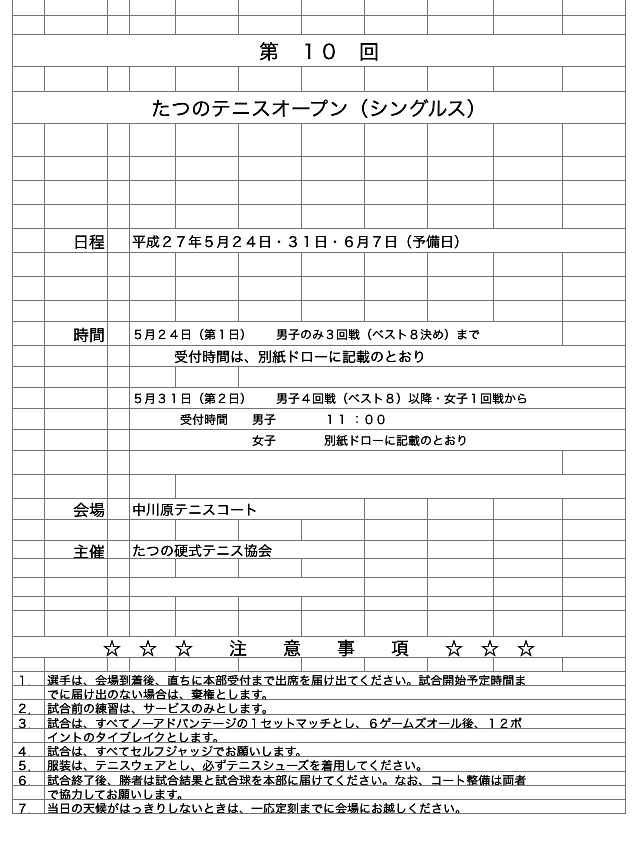 第　１０　回
たつのテニスオープン（シングルス）
日程　平成２７年５月２４日・３１日・６月７日（予備日）
時間　５月２４日（第１日）　　男子のみ３回戦（ベスト８決め）まで
受付時間は、別紙ドローに記載のとおり
５月３１日（第２日）　　男子４回戦（ベスト８）以降・女子１回戦から
受付時間　　男子　　　　１１：００
女子　　　　別紙ドローに記載のとおり
会場　中川原テニスコート
主催　たつの硬式テニス協会
☆　☆　☆　　注　　意　　事　　項　　☆　☆　☆
１．選手は、会場到着後、直ちに本部受付まで出席を届け出てください。試合開始予定時間ま
でに届け出のない場合は、棄権とします。
２．試合前の練習は、サービスのみとします。
３．試合は、すべてノーアドバンテージの１セットマッチとし、６ゲームズオール後、１２ポ
イントのタイブレイクとします。
４．試合は、すべてセルフジャッジでお願いします。
５．服装は、テニスウェアとし、必ずテニスシューズを着用してください。
６．試合終了後、勝者は試合結果と試合球を本部に届けてください。なお、コート整備は両者
で協力してお願いします。
７．当日の天候がはっきりしないときは、一応定刻までに会場にお越しください。